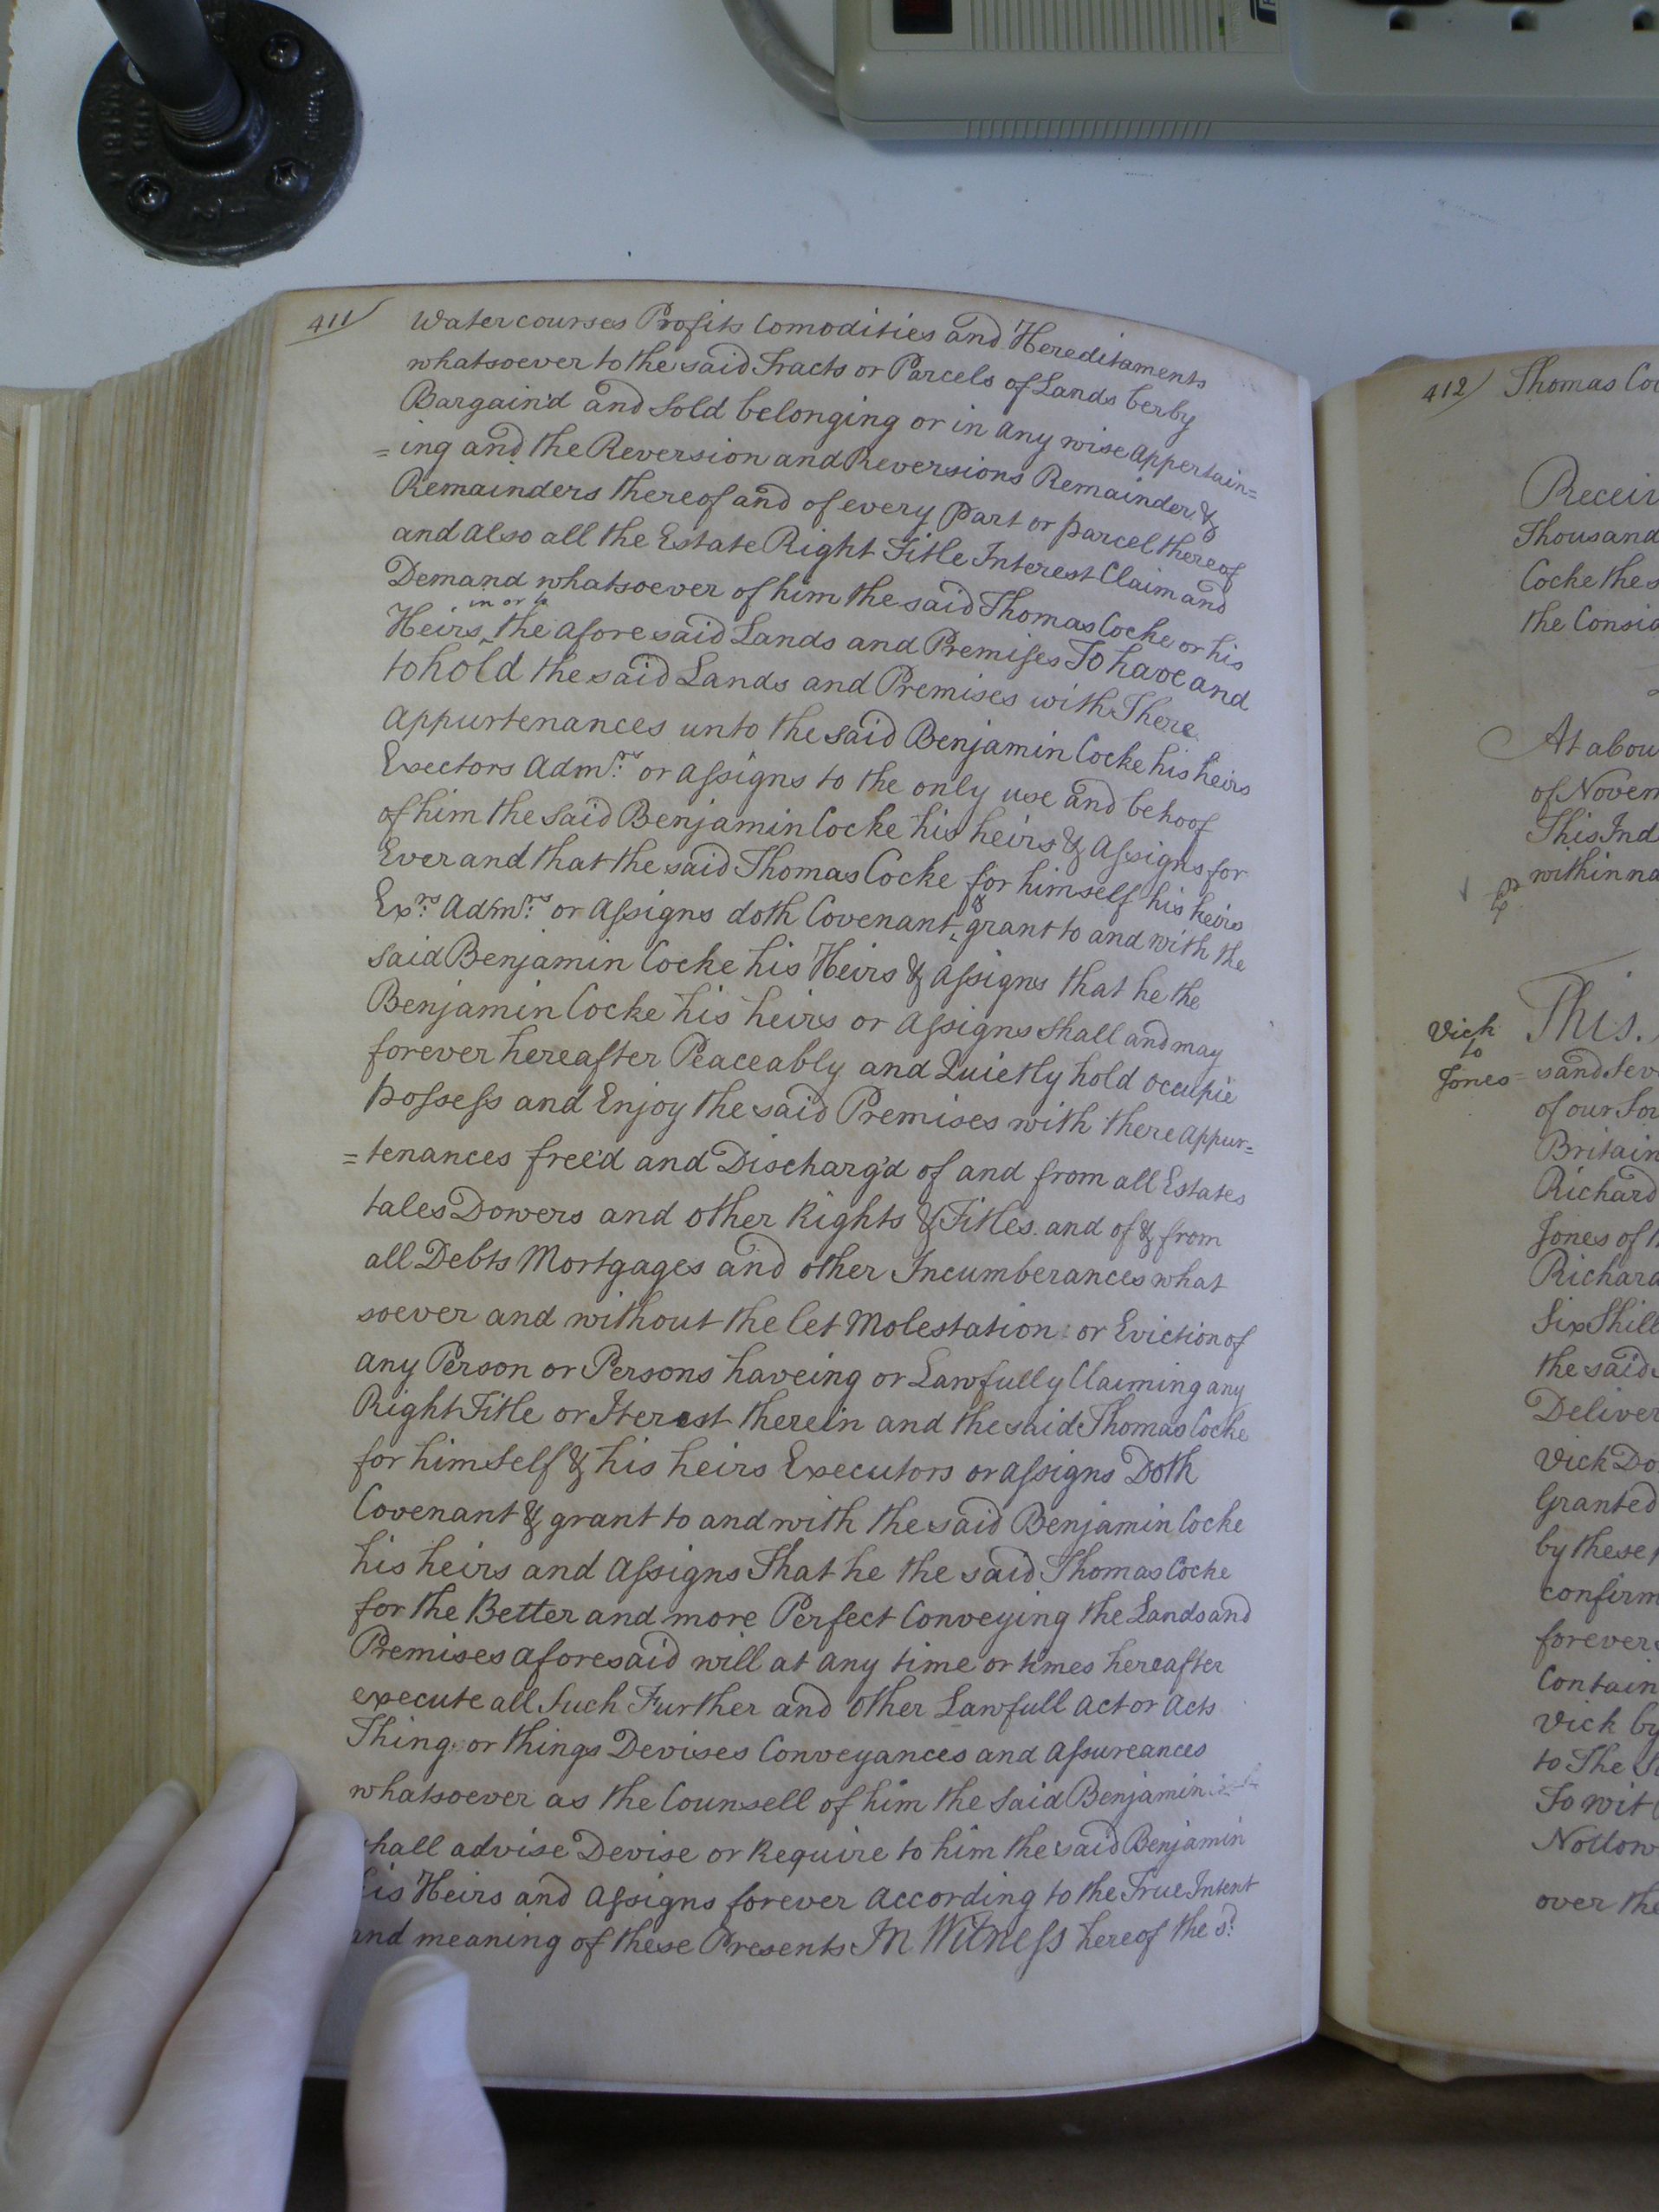 411
Water courses Profits Comodities and Hereditaments
whatsoever to the said Tracts or Parcels of Lands herby
Bargain'd and Sold belonging or in any wise appertain=
=ing and the Reversion and Reversions Remainder &
Remainders thereof and of every part or parcel thereof
and also all the Estate Right Title Interest Claim and
Demand whatsoever of him the said Thomas Cocke or his
in or to
Heirs the afore said Lands and Premises To have and
to hold the said Lands and Premises with There
appurtenances unto the said Benjamin Cocke his heirs
Exectors Admrs or assigns to the only use and behoof
of him the said Benjamin Cocke his heirs & assigns for
Ever and that the said Thomas Cocke for himself his heirs
Exrs Admrs or assigns doth Covenant & grant to and with the
said Benjamin Cocke his Heirs & assigns that he the
Benjamin Cocke his heirs or assigns shall and may
forever hereafter Peaceably and Quietly hold occupie
possess and Enjoy the said Premises with there appur=
=tenances free'd and Discharg'd of and from all Estates
tales Dowers and other Rights & Titles and of & from
all Debts Mortgages and other Incumberances what
soever and without the let Molestation or Eviction of
any Person or Persons haveing or Lawfully Claiming any
Right Title or Iterest therein and the said Thomas Cocke
for himself & his heirs Executors or assigns Doth
Covenant & grant to and with the said Benjamin Cocke
his heirs and assigns That he the said Thomas Cocke
for the Better and more Perfect Conveying the Lands and
Premises aforesaid will at any time or times hereafter
execute all Such Further and other Lawfull act or acts
Thing or things Devises Conveyances and assureances
whatsoever as the Counsell of him the said Benjamin
hall advise Devise or Require to him the said Benjamin
is Heirs and assigns forever according to the True Intent
and meaning of these Presents In Witness hereof the sd
412 Thomas Co
Receiv
Thousand
Cocke the s
the Consid
At abou
of Novem
This Ind
within na
Vick
to
Jones
This
sand Sev
of our So
Britain
Richard
Jones of
Richard
Six Shill
the said
Deliver
Vick Do
Granted
by these
confirm
forever
Contain
Vick by
to The
To wit
Nottow
over the